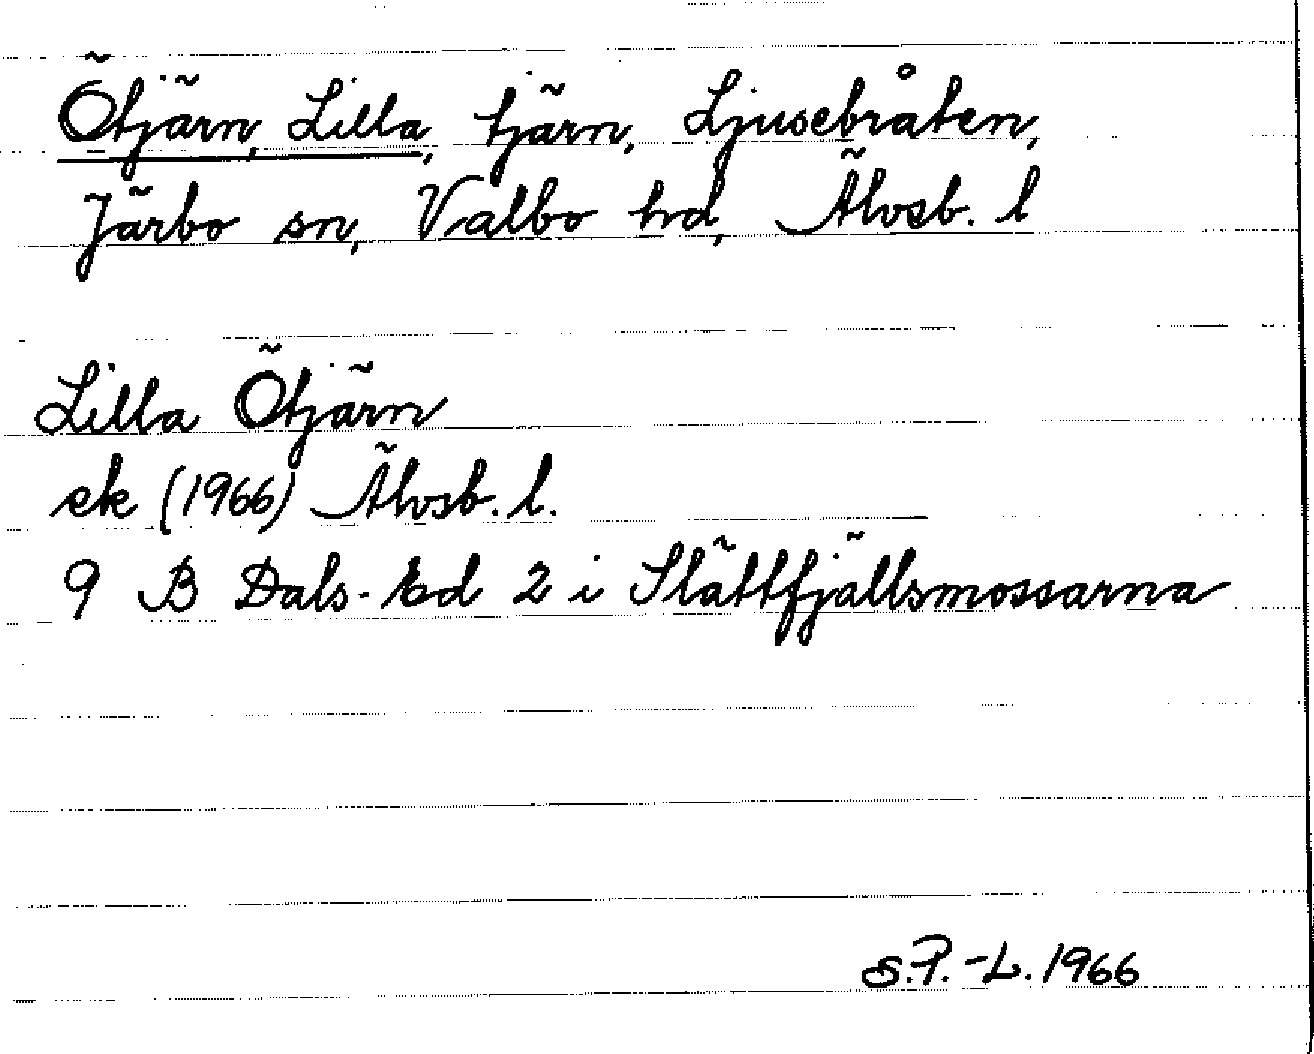 Ötjärn, Lilla, tjärn, Ljusebråten,
Järbo sn, Valbo hd, Älvsb. l
Lilla Ötjärn
ek (1966) Älvsb. l.
9 B Dals-Ed 2 i Slättfjällsmossarna
S.P.-L. 1966